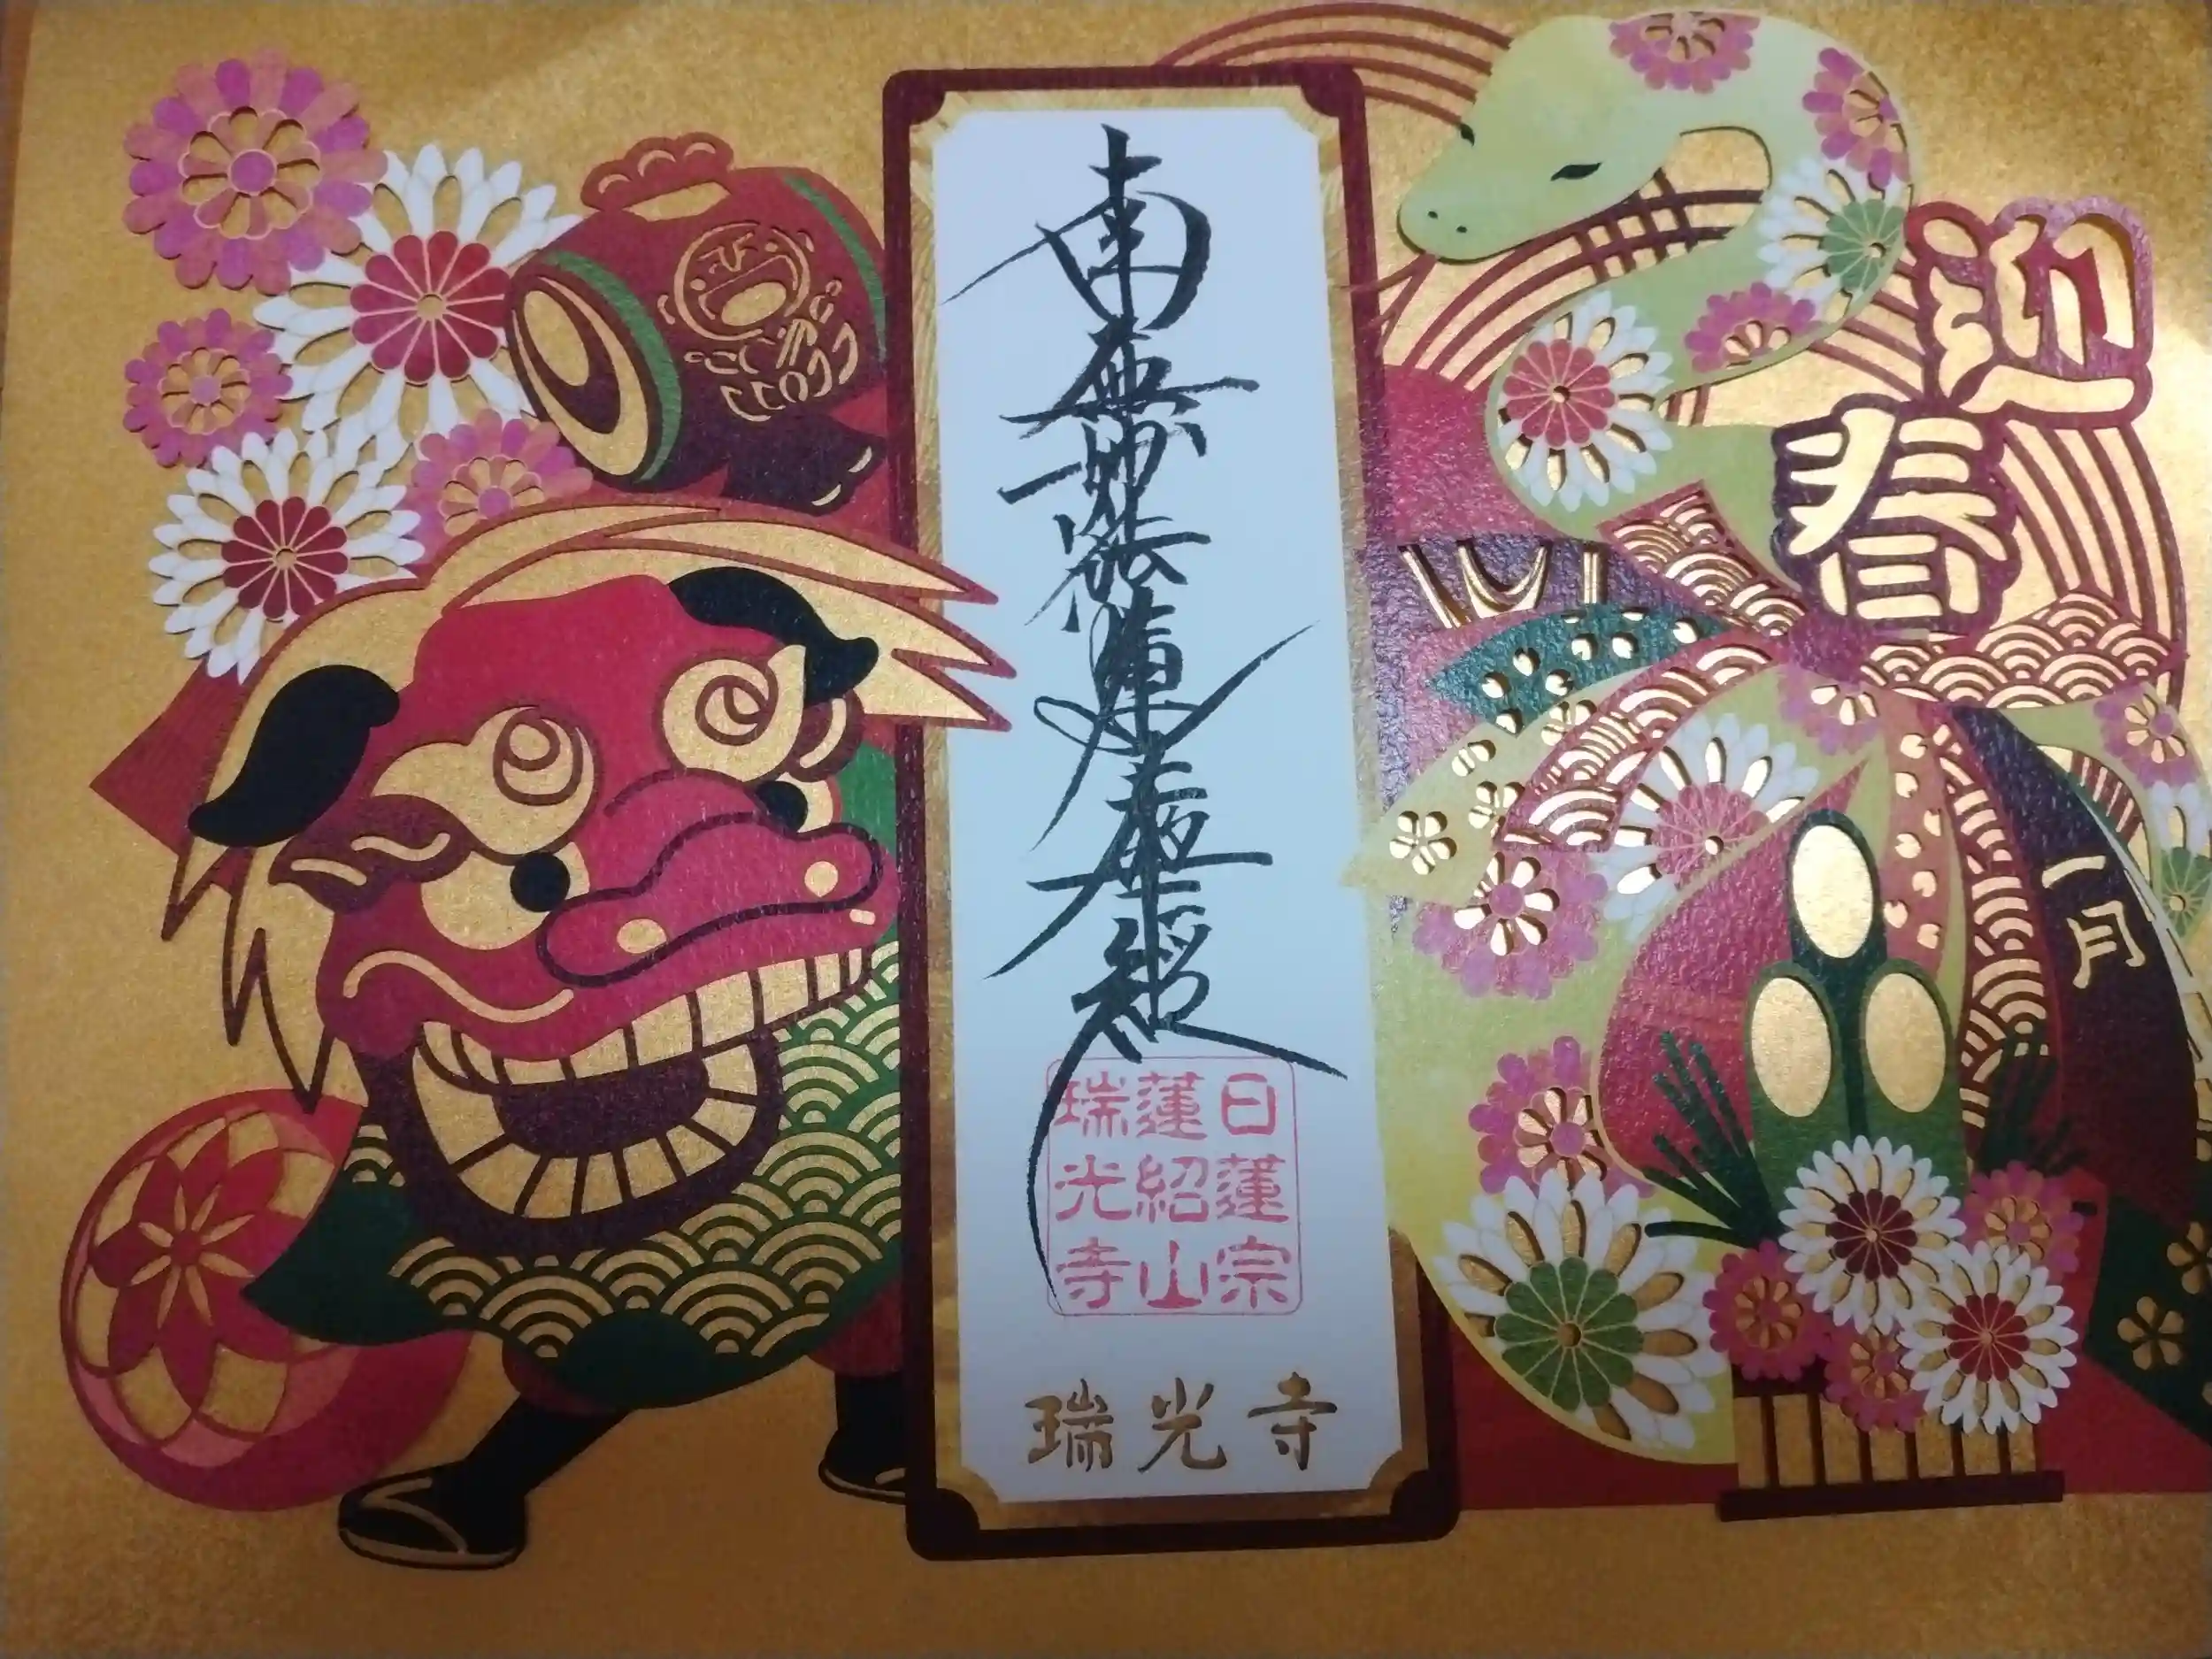 迎春
一月
南無妙法蓮華経
日蓮宗
蓮紹山
瑞光寺
瑞光寺